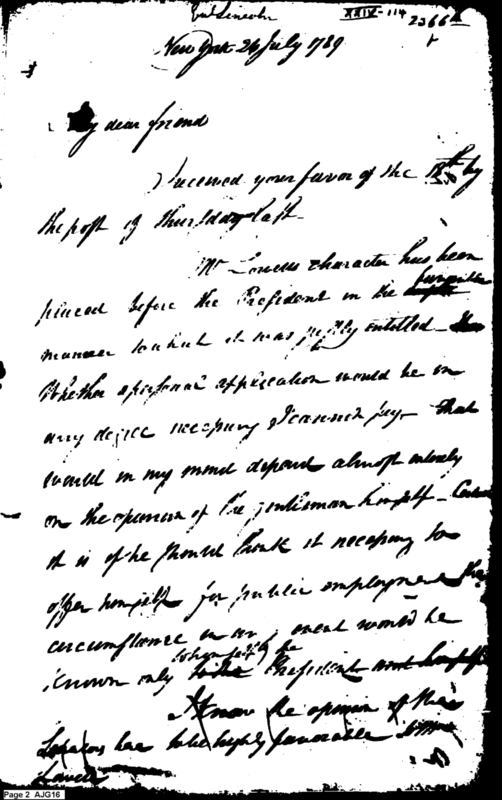 Genl Lincoln
XXIV-114
2366
New York 26 July 1789
My dear friend
I received your favor of the 18th by
the post of thursday last.
Mr Lowells character has been
placed before the President in the favorable
manner to which it was justly entitled
Whether a personal application would be in
any degree necessary I cannot say – that
would in my mind depend almost entirely
on the opinion of the gentleman himself –
it is if he should think it necessary to
offer himself for public employment the
circumstance in any event would be
known only to himself & the President and himself
I know the opinion of the
here to be highly favorable to Mr
Lowell
Page 2 AJG16